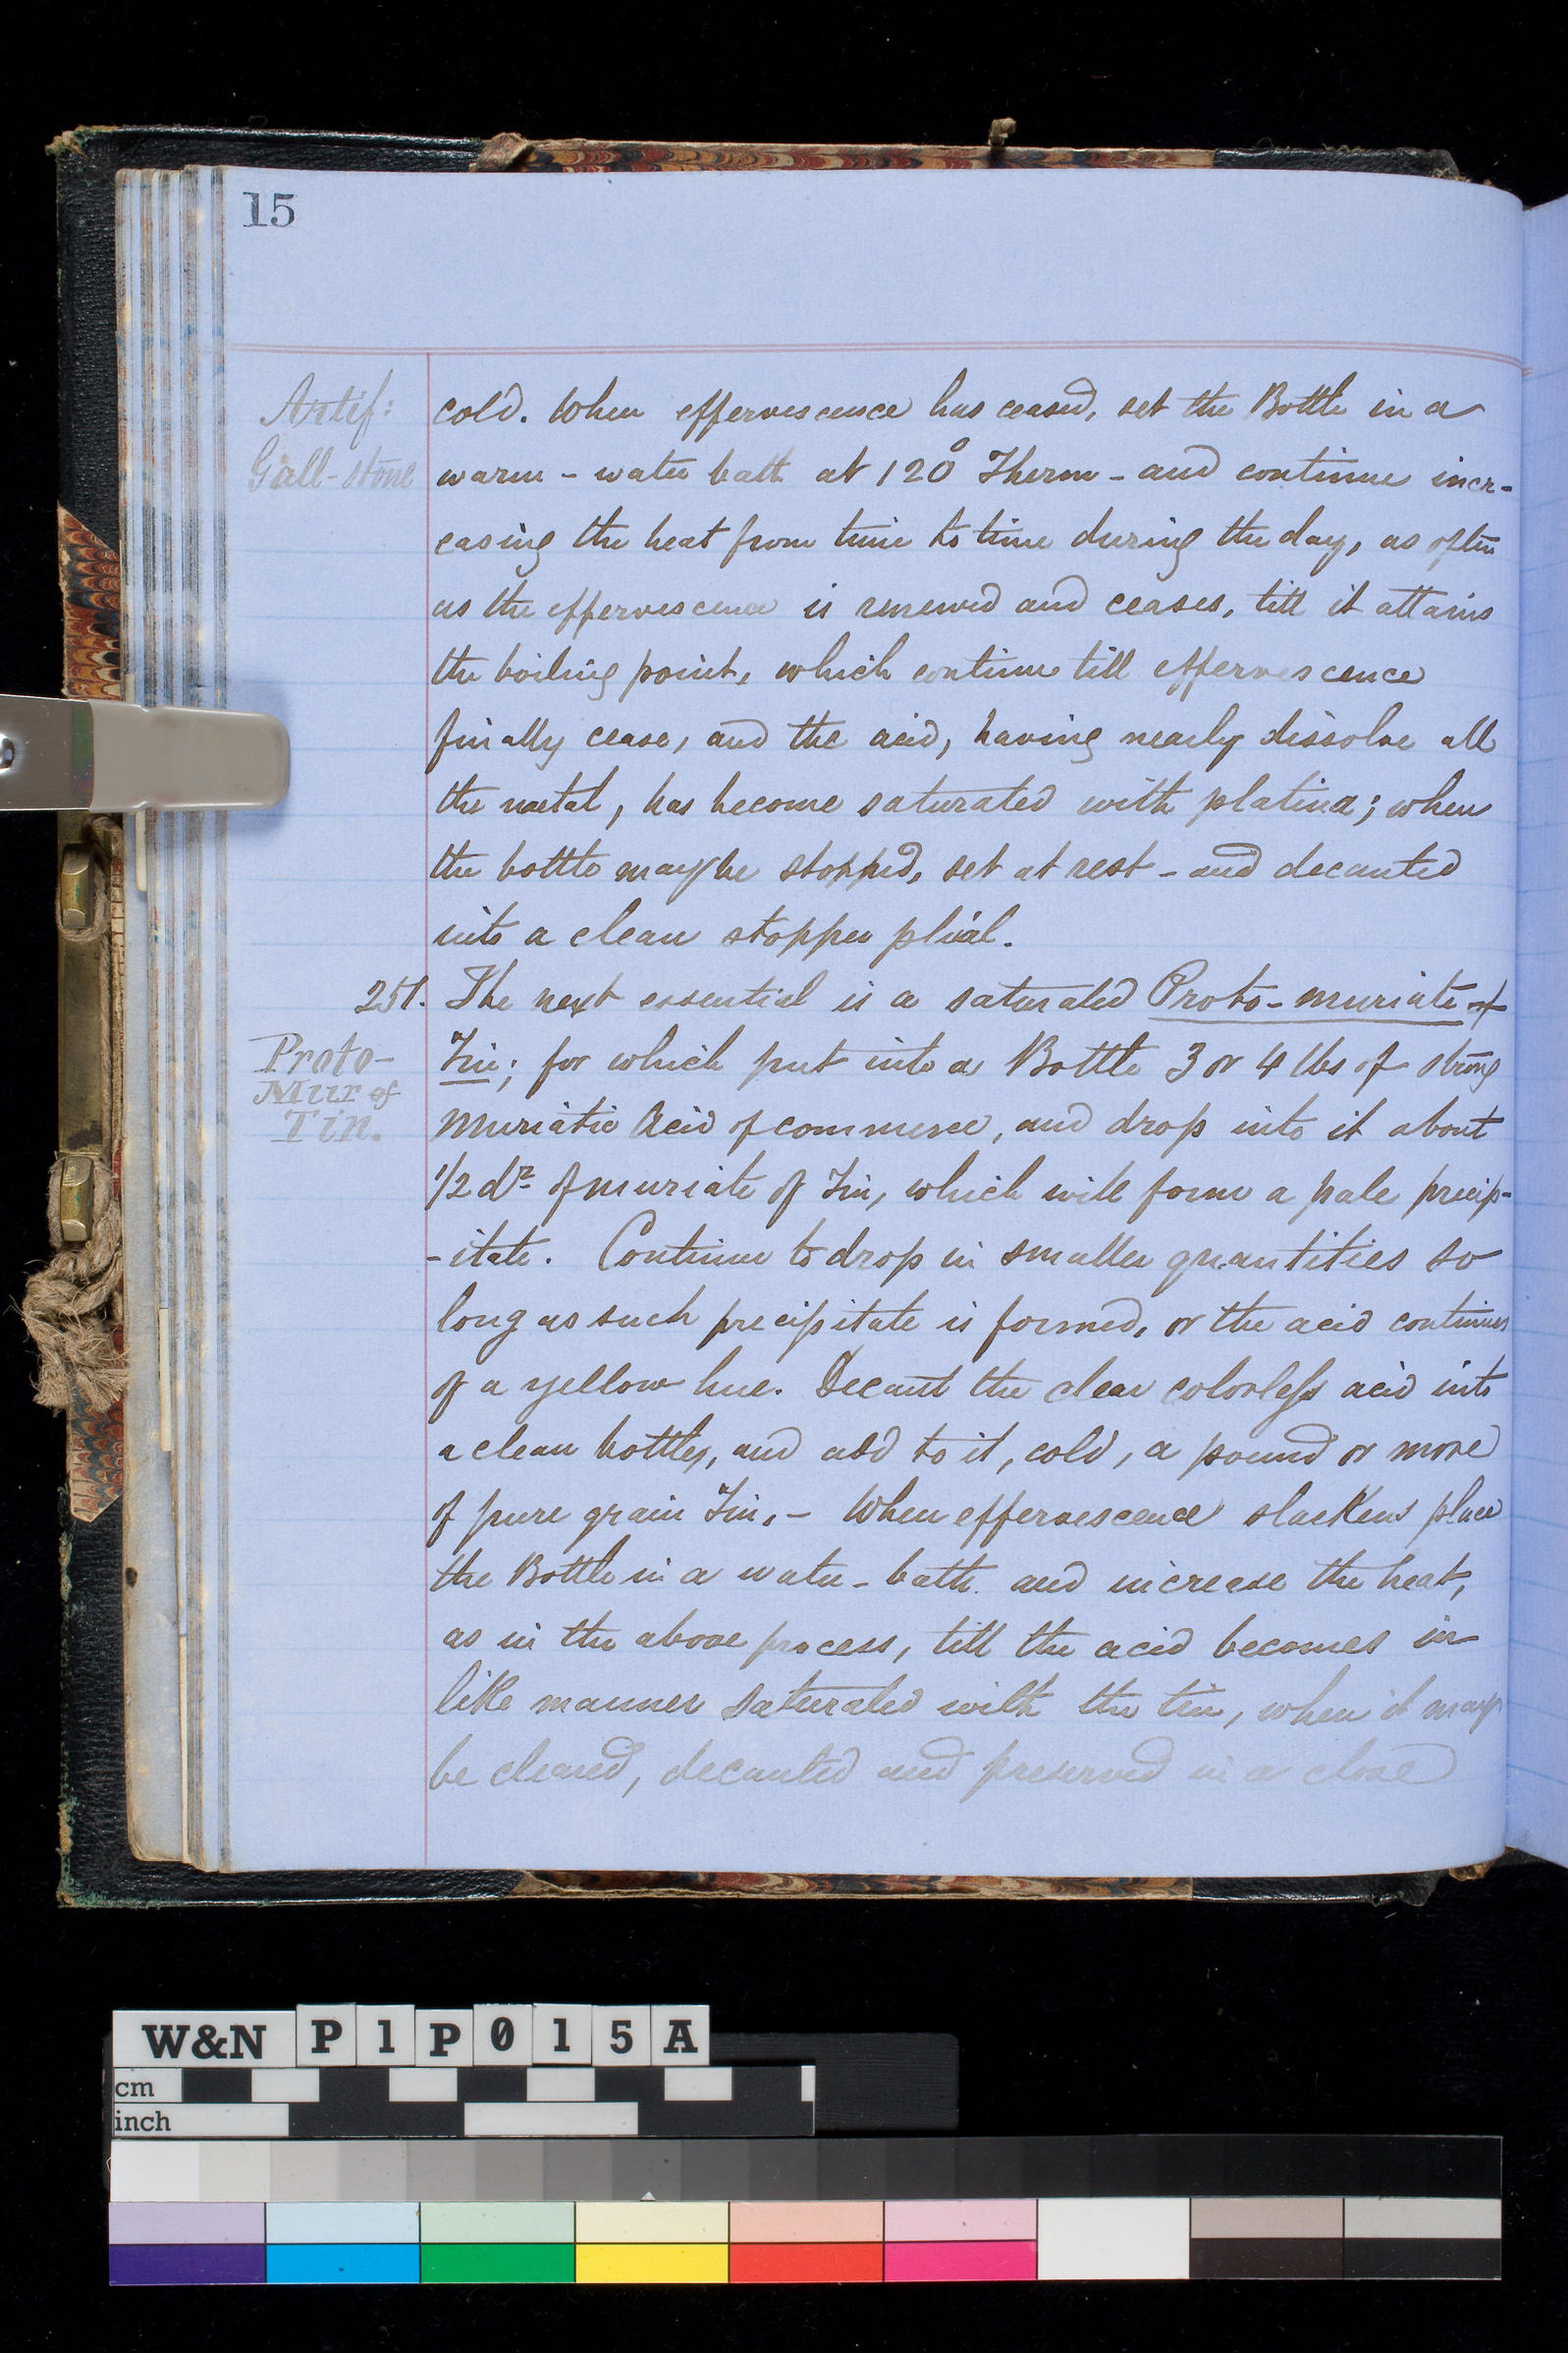 15
Artif:
Gall-stone
cold. When effervescence has ceased, set the Bottle in a
warm - water bath at 120° Therm - and continue incr-
easing the heat from time to time during the day, as often
as the effervescence is renewed and ceases, till it attains
the boiling point, which continue till effervescence
finally cease, and the acid, having nearly dissolve all
the metal, has become saturated with platina; when
the bottle may be stopped, set at rest - and decanted
into a clean stopper phial.
251. The next essential is a saturated Proto-muriate of
Proto-
Mur of
Tin.
Tin; for which put into a Bottle 3 or 4 lbs of strong
Muriatic Acid of commerce, and drop into it about
1/2 dr of muriate of Tin, which will form a pale precip-
-itate. Continue to drop in smaller quantities so
long as such precipitate is formed, or the acid continues
of a yellow hue. Decant the clear colorless acid into
a clean bottle, and add to it, cold, a pound or more
of pure grain Tin, - When effervescence slackens place
the Bottle in a water-bath and increase the heat,
as in the above process, till the acid becomes in
like manner saturated with the tin, when it may
be cleared, decanted and preserved in a close
W&N P1P015A
cm
inch